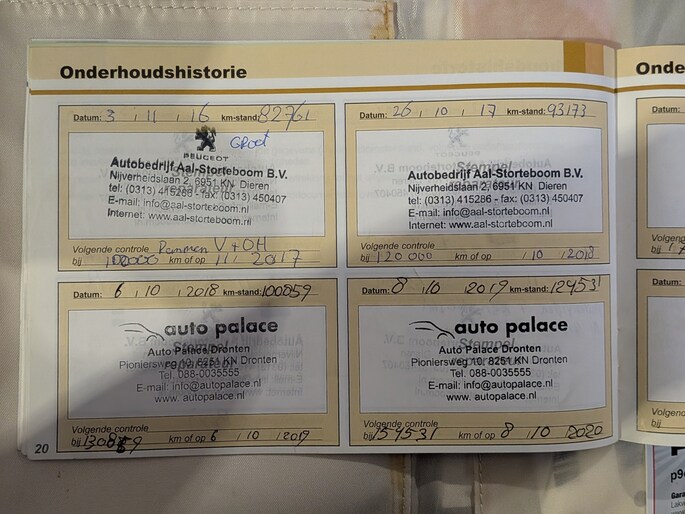 Onderhoudshistorie
Datum: 3 , 11 , 16 km-stand: 82761
PEUGEOT
Groot
Autobedrijf Aal-Storteboom B.V.
Nijverheidslaan 2, 6951 KN Dieren
tel: (0313) 415286 - fax: (0313) 450407
E-mail: info@aal-storteboom.nl
Internet: www.aal-storteboom.nl
Volgende controle Remmen V+OH
bij 100000 km of op 11 2017
Datum: 26 , 10 , 17 km-stand: 93173
PEUGEOT
Stempel
Autobedrijf Aal-Storteboom B.V.
Nijverheidslaan 2, 6951 KN Dieren
tel: (0313) 415286 - fax: (0313) 450407
E-mail: info@aal-storteboom.nl
Internet: www.aal-storteboom.nl
Volgende controle
bij 120000 km of op , 10 , 2018
Datum: 6 , 10 , 2018 km-stand: 100859
auto palace
Stempel
Auto Palace Dronten
Pioniersweg 10, 8251 KN Dronten
Tel. 088-0035555
E-mail: info@autopalace.nl
www. autopalace.nl
Volgende controle
bij 130859 km of op 6 , 10 , 2019
Datum: 8 , 10 , 2019 km-stand: 124531
auto palace
Stempel
Auto Palace Dronten
Pioniersweg 10, 8251 KN Dronten
Tel. 088-0035555
E-mail: info@autopalace.nl
www. autopalace.nl
Volgende controle
bij 154531 km of op 8 , 10 , 2020
20
Onde
Datum:
Volgend
bij
Datum:
Volgend
bij
p9
Gara